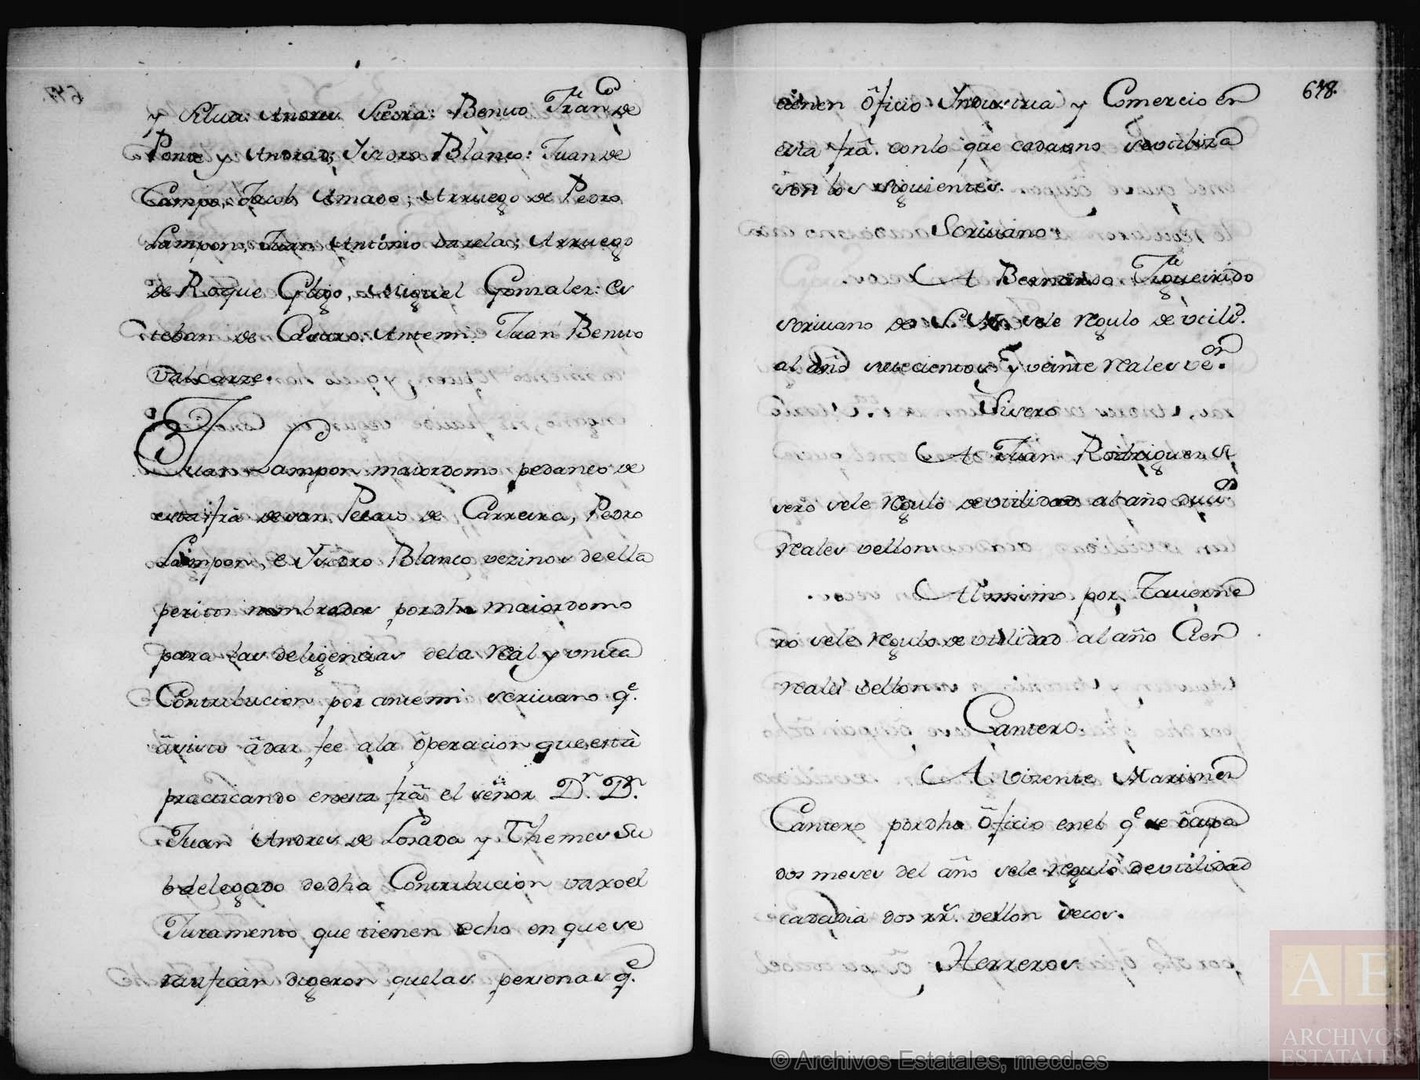 y Silua: Andres Sieira: Benito Franco. de
Ponte y Andrad; Ysidro Blanco: Juan de
Campo, Jacob Amado; Arruego de Pedro
Lampon, Juan Antonio Varelas; Arruego
de Roque Gligo, Miguel Gonzalez: Es
teban de Castro. Antemi. Juan Benito
Valcarze.
Juan Lampon maiordomo pedaneo de
esta frã de san Pelaio de Carreira, Pedro
Lampon, e Ysidro Blanco vezinos de ella
peritos nombrados por dho maiordomo
para las deligencias de la Real y vnica
Contribucion por antemi scriuano qe.
âsisto âdar fee a la ôperacion que està
practicando enesta frã el señor Dr. Dn.
Juan Andres de Losada y Themes Su
bdelegado de dha Contribucion vaxo el
Juramento que tienen echo en que se
ratifican digeron que las personas qe.
648.
tienen ôficio Yndustria y Comercio en
esta frã. con lo que cada uno se vtiliza
son los siguientes.
Scriuano
A Bernardo Figueirido
scriuano de S. M. sele regulo de vtilid.
al año seiscientos y veinte reales von.
Sisero
A Juan Rodriguez si
sero sele regulò de vtilidad al año
reales vellon
Assimismo por Taverne
ro sele regulo de vtilidad al año Cien
reales vellon
Cantero.
A Vizente Mariner
Cantero por dho ôficio enel qe. se ôcupa
dos meses del año sele regulò de vtilidad
cada dia dos rrs. vellon secos.
Herreros
© Archivos Estatales, mecd.es
AE
ARCHIVOS
ESTATALES